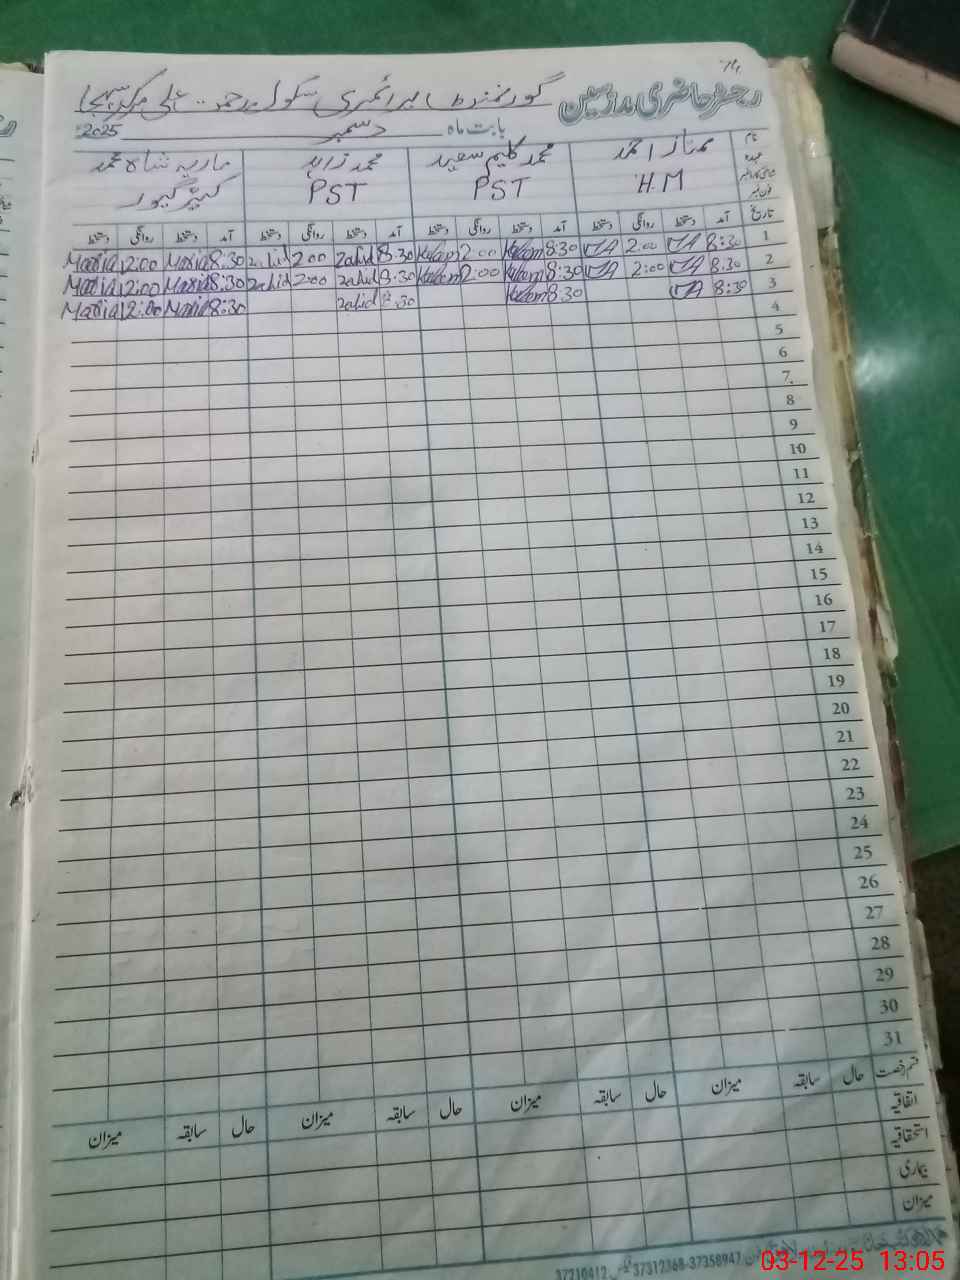 رجسٹر حاضری مدرسین گورنمنٹ پرائمری سکول
بابت ماہ دسمبر 2025
نام
عہدہ
ممتاز احمد محمد کلیم سعید محمد زاہد ماریہ شاہ محمد
H.M PST PST کیئر گیور
تاریخ آمد دستخط روانگی دستخط آمد دستخط روانگی دستخط آمد دستخط روانگی دستخط آمد دستخط روانگی دستخط
1 8:30 2:00 8:30 Kaleem 2:00 Kaleem 8:30 Zahid 2:00 Zahid 8:30 Maria 12:00 Maria
2 8:30 2:00 8:30 Kaleem 2:00 Kaleem 8:30 Zahid 2:00 Zahid 8:30 Maria 12:00 Maria
3 8:30 8:30 Kaleem 8:30 Zahid 8:30 Maria 12:00 Maria
4
5
6
7
8
9
10
11
12
13
14
15
16
17
18
19
20
21
22
23
24
25
26
27
28
29
30
31
قسم رخصت حال سابقہ میزان حال سابقہ میزان حال سابقہ میزان حال سابقہ میزان
اتفاقیہ
استحقاقیہ
بیماری
میزان
37210412 37312368-37358947
03-12-25 13:05